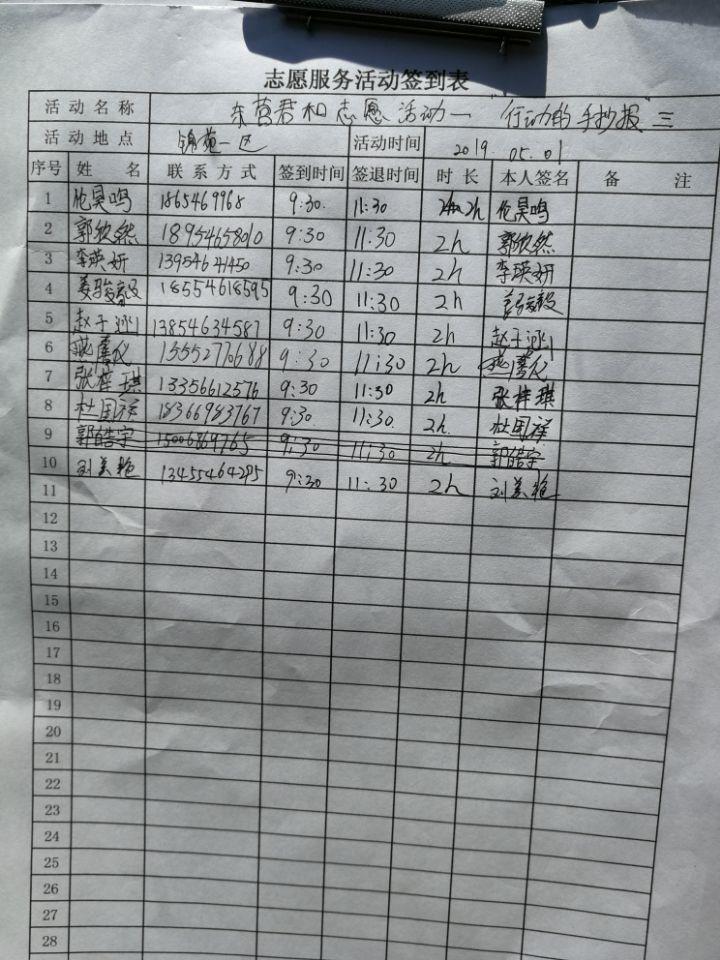 志愿服务活动签到表
活动名称 东营君和志愿活动一 “行动的手抄报” 三
活动地点 锦苑一区 活动时间 2019.05.01
序号 姓名 联系方式 签到时间 签退时间 时长 本人签名 备注
1 伦昊鸣 1865469968 9:30. 11:30 2h 伦昊鸣
2 郭欣然 18954658010 9:30 11:30 2h 郭欣然
3 李瑛妍 13954641450 9:30 11:30 2h 李瑛妍
4 姜骏毅 18554618595 9:30 11:30 2h 姜骏毅
5 赵子涵 13854634587 9:30 11:30 2h 赵子涵
6 13552770688 9:30 11:30 2h
7 张梓琪 13356612576 9:30 11:30 2h 张梓琪
8 杜国祥 18366983767 9:30. 11:30. 2h. 杜国祥
9 郭皓宇 15006869765 9:30 11:30 2h 郭皓宇
10 刘美艳 13455464295 9:30 11:30 2h 刘美艳
11
12
13
14
15
16
17
18
19
20
21
22
23
24
25
26
27
28